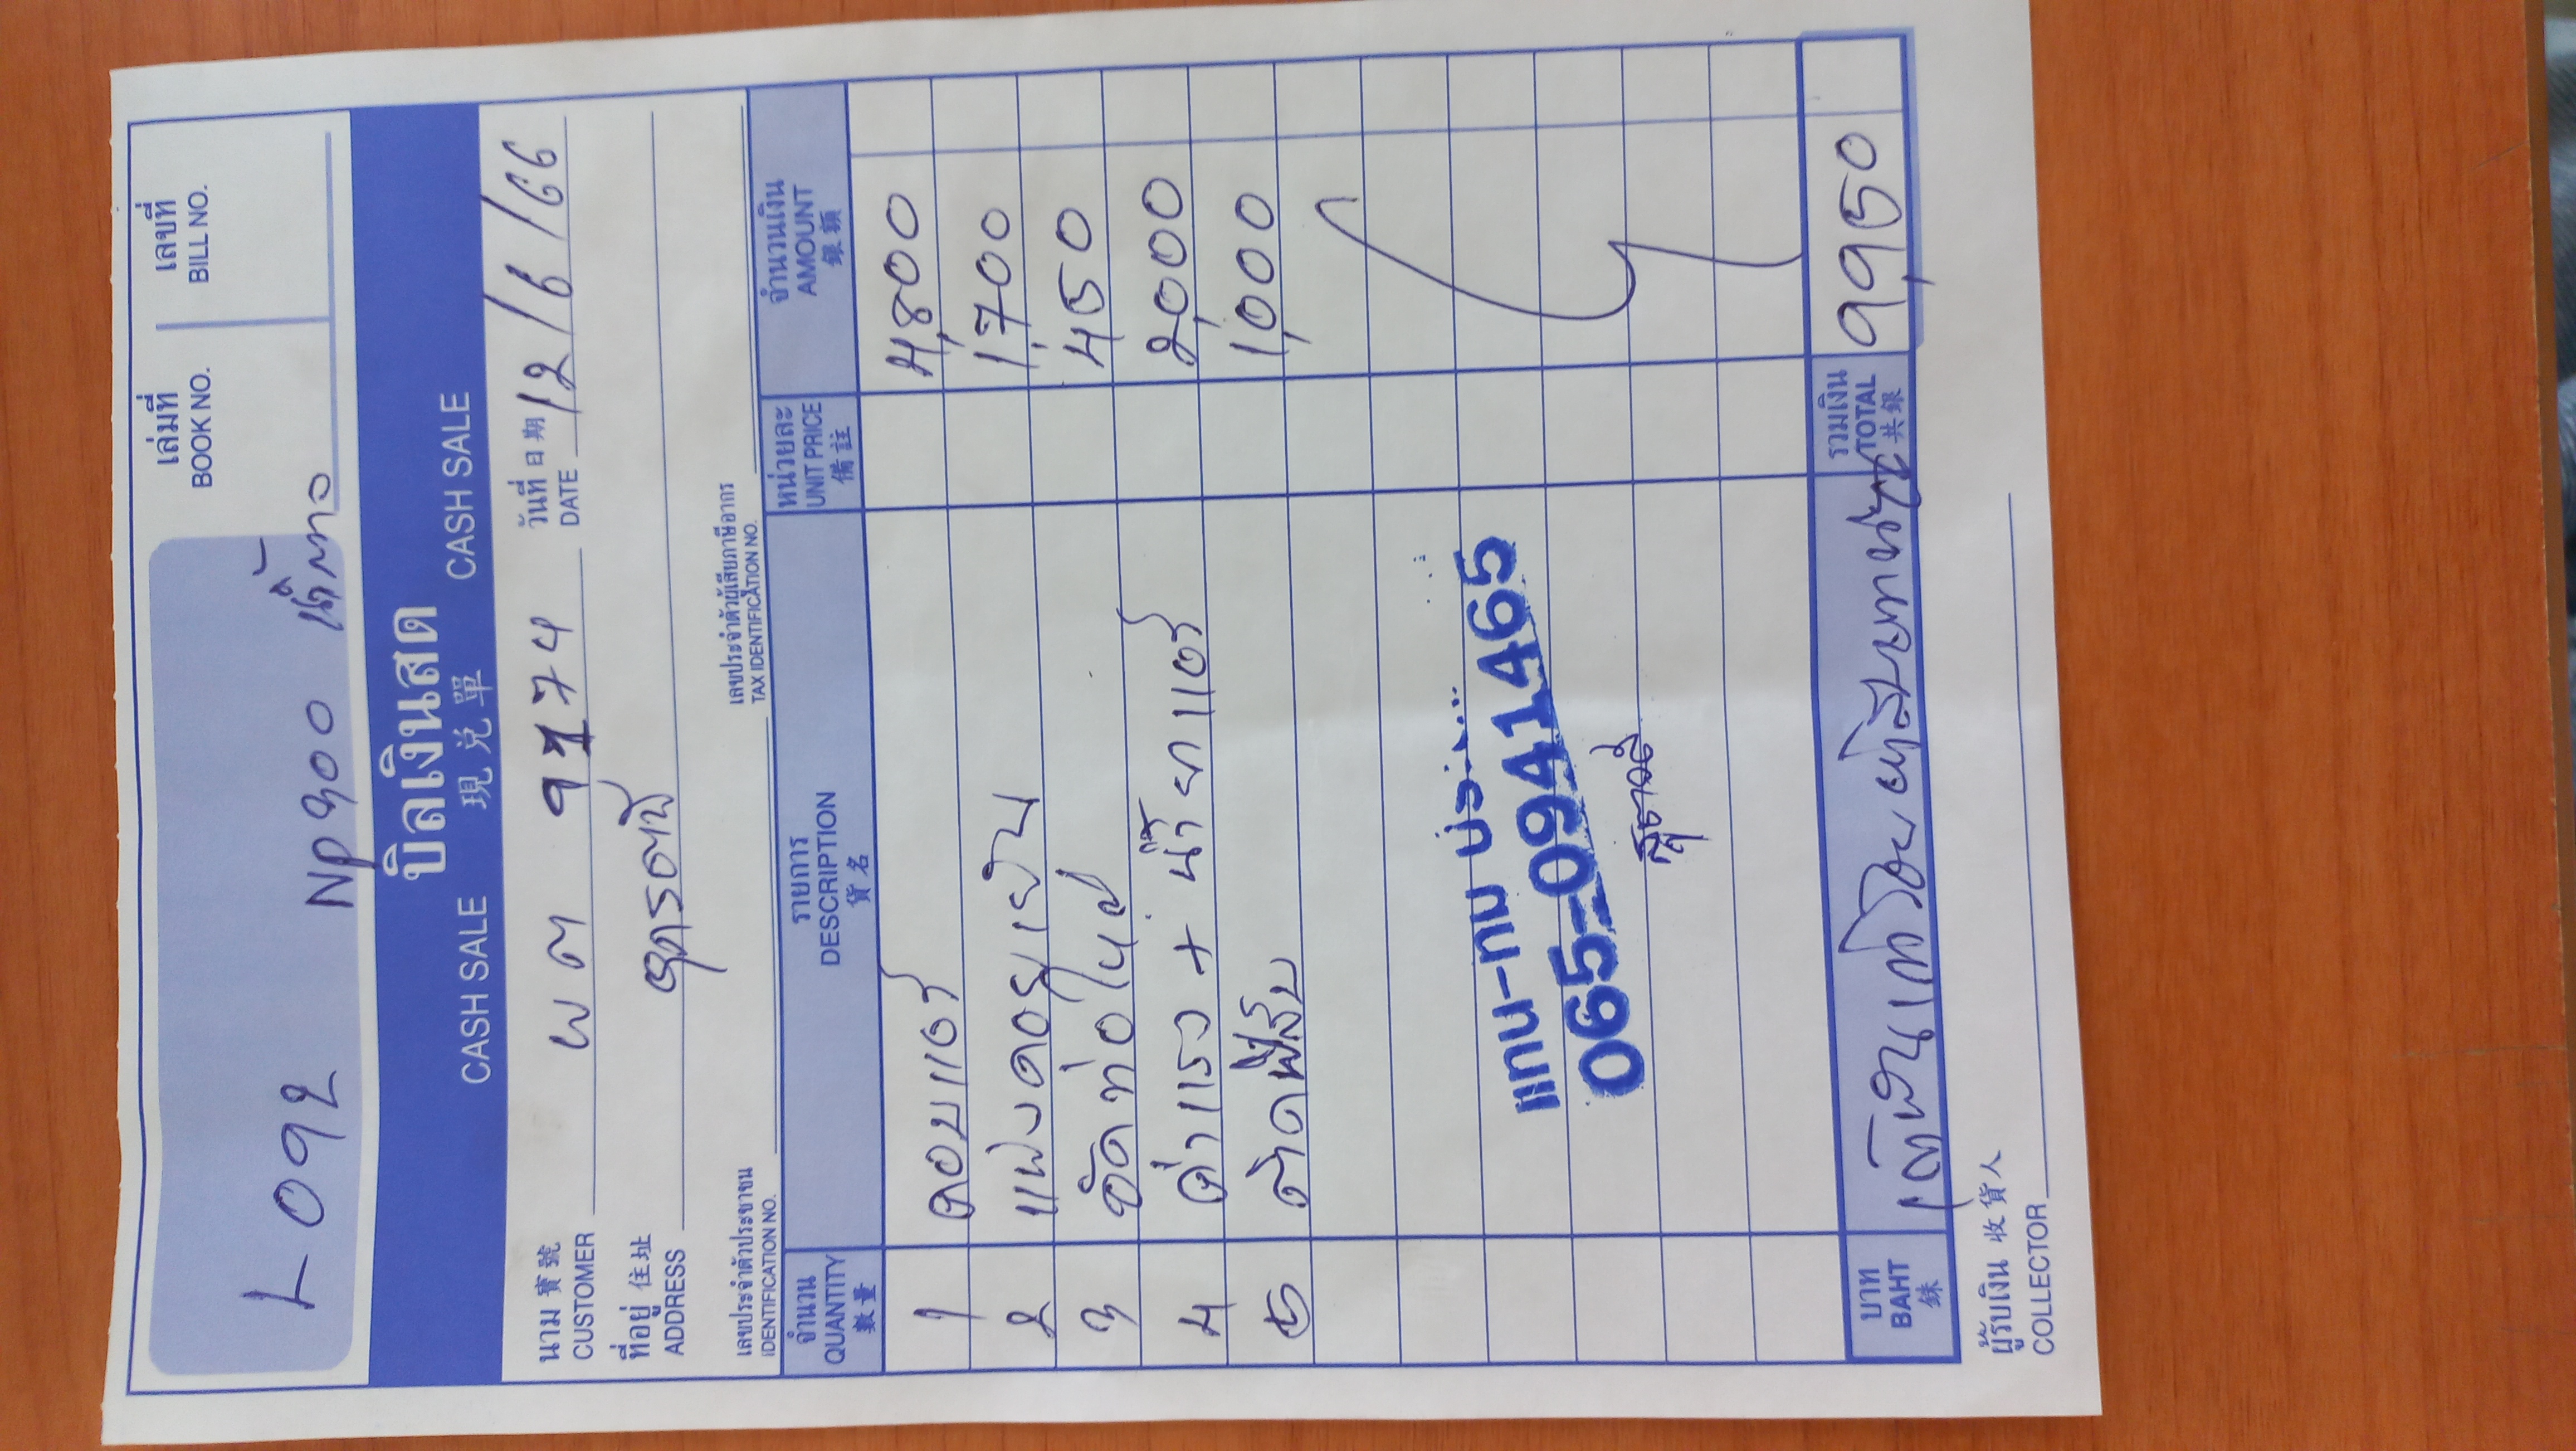 L 092
NP300 เต๊าทอง
เล่มที่
BOOK NO.
เลขที่
BILL NO.
CASH SALE บิลเงินสด CASH SALE
現兌單
นาม 寶號
CUSTOMER
ผต 9774
วันที่ 日期
DATE
12/6/66
ที่อยู่ 住址
ADDRESS
อุดรธานี
เลขประจำตัวประชาชน
IDENTIFICATION NO.
เลขประจำตัวผู้เสียภาษีอากร
TAX IDENTIFICATION NO.
จำนวน รายการ หน่วยละ จำนวนเงิน
QUANTITY DESCRIPTION UNIT PRICE AMOUNT
數量 貨名 備註 銀額
1 คอมแอร์ 4,800
2 แผงคอยเย็น 1,700
3 อัดท่อใหม่ 450
4 ค่าแรง + น้ำยาแอร์ 2,000
5 1,000
065-0941465
บาท
BAHT
銖
เก้าพันเก้าร้อยห้าสิบบาทถ้วน
รวมเงิน
TOTAL
共銀
9,950
ผู้รับเงิน 收貨人
COLLECTOR